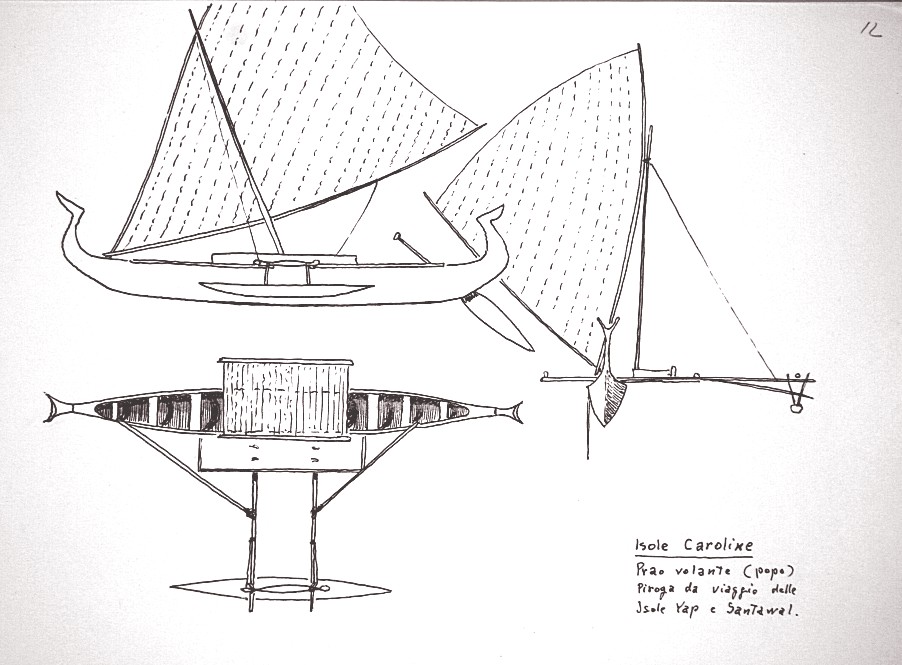 12
Isole Caroline
Prao volante (popo)
Piroga da viaggio delle
Isole Yap e Santawal.